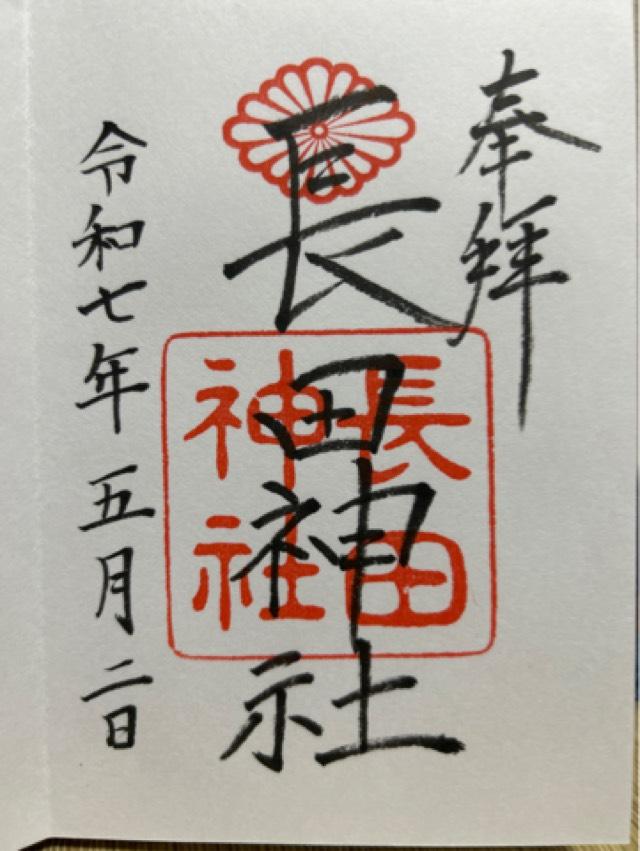 奉拝
長田神社
長田
神社
令和七年五月二日